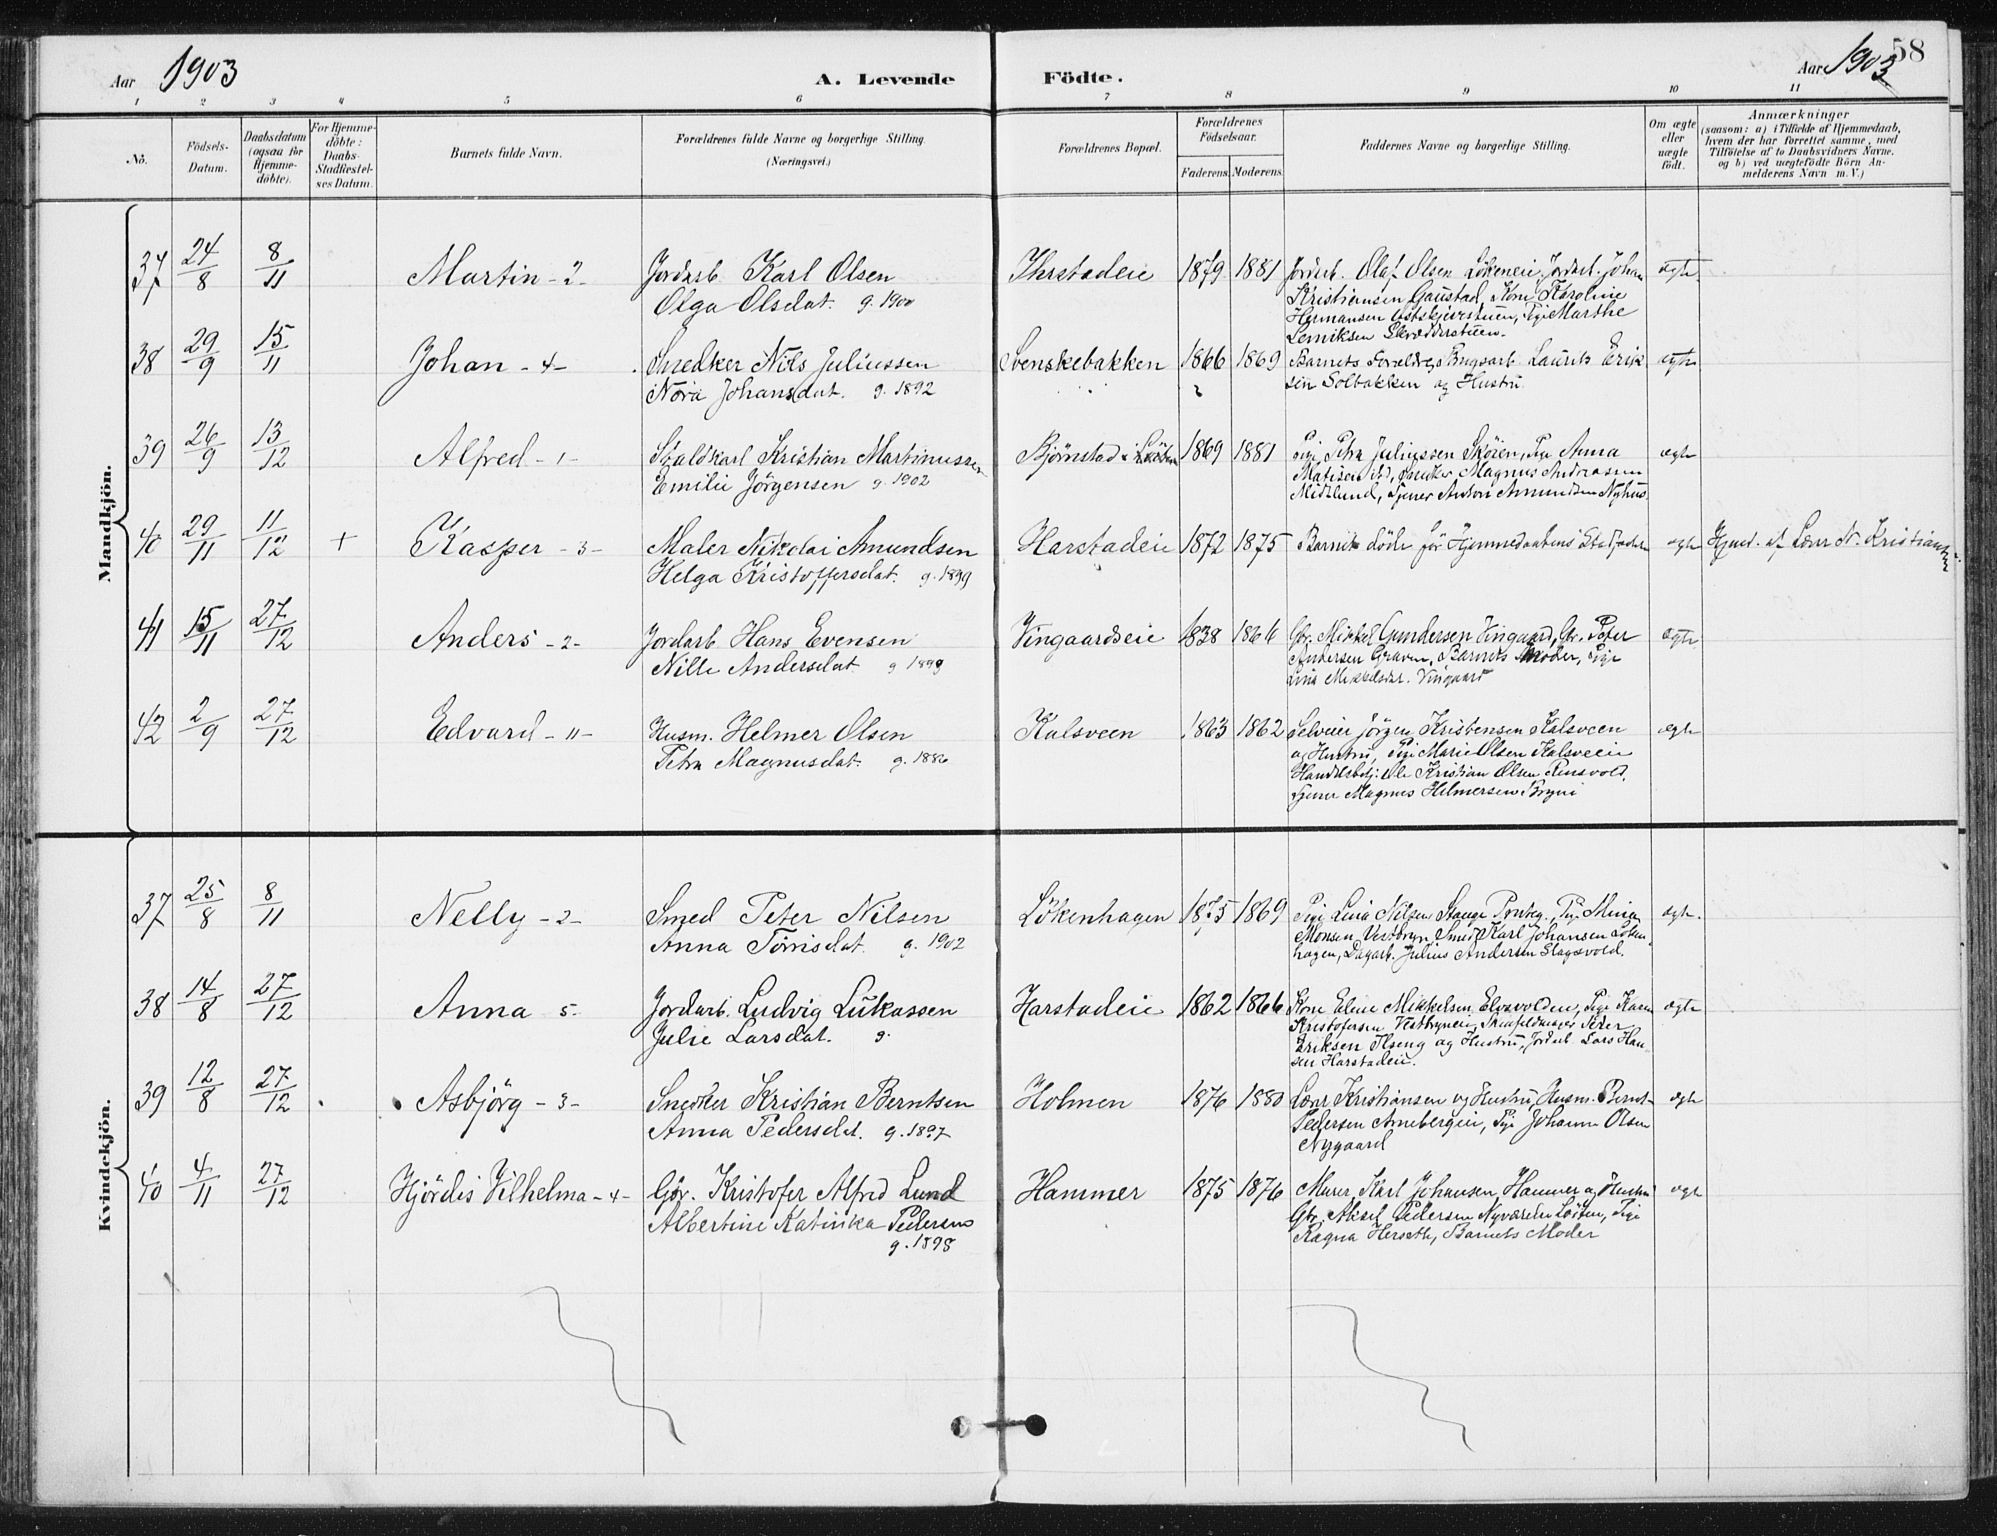 Aar 1903 A. Levende Födte. Aar 1903 58
1 2 3 4 5 6 7 8 9 10 11
No.
Födsels-Datum.
Daabsdatum (ogsaa for Hjemme-döbte).
For Hjemme-döbte: Daabs-Stadfestel-ses Datum.
Barnets fulde Navn.
Forældrenes fulde Navne og borgerlige Stilling. (Næringsvei.)
Forældrenes Bopæl.
Forældrenes Födselsaar.
Faderens. Moderens.
Faddernes Navne og borgerlige Stilling.
Om ægte eller uægte födt.
Anmærkninger
(saasom: a) i Tilfælde af Hjemmedaab,
hvem der har forrettet samme, med
Tilföielse af to Daabsvidners Navne.
og b) ved uægtefödte Börn An-
melderens Navn m. V.)
Mandkjön.
37 24/8 8/11 Martin - 2 - Jordarb. Karl Olsen Ihrstadeie 1879 1881 Jordarb. Olaf Olsen Lökeneie, Jordarb. Johan ægte
Olga Olsdat. g. 1900 Kristiansen Gaustad, Kone Karoline
Hermansen, Pige Marthe
38 29/9 15/11 Johan - 4 - Snedker Nils Juliussen Svenskebakken 1866 1869 Barnets Forældre, Laurits Erik ægte
Nora Johansdat. g. 1892 sen Solbakken og Hustru
39 26/9 13/12 Alfred - 1 - Staldkarl Kristian Martinussen Bjørnstad i Löiten 1869 1881 Pige Petra Juliussen Skören, Pige Anna ægte
Emilie Jörgensen g. 1902 Magnus Andreasen
Midtlund, Tjener Anton Amundsen Nyhus
40 29/11 11/12 + Kasper - 3 - Maler Nikolai Amundsen Harstadeie 1872 1875 Barnet döde för Hjemmedaabens ægte Hjmd. af Lærer N. Kristiansen
Helga Kristoffersdat. g. 1899
41 15/11 27/12 Anders - 2 - Jordarb. Hans Evensen Vingaardseie 1838 1866 Gbr. Mikkel Gundersen Vingaard, Gbr. Peter ægte
Nille Andersdat g 1899 Andersen Graven, Barnets Moder, Pige
Lina Mikkelsdat. Vingaard
42 2/9 27/12 Edvard - 11 - Husm. Helmer Olsen Kalsveen 1863 1862 Selveier Jörgen Kristensen Kalsveen ægte
Petra Magnusdat. g. 1886 og Hustru, Pige Marie Olsen Kalsveen
Handelsbetj. Ole Kristian Olsen Rensvold,
Tjener Magnus Helmersen Bryni
Kvindekjön.
37 25/8 8/11 Nelly - 2 - Smed Peter Nilsen Lökenhagen 1875 1869 Pige Lina Nilsen Stange Prstg., Pige Mina ægte.
Anna Tørrisdat. g. 1902 Monsen Vestbryn, Smed Karl Johansen Löken-
hagen, Dagarb. Julius Andersen Slagsvold.
38 14/8 27/12 Anna - 5 - Jordarb. Ludvig Lukassen Harstadeie 1862 1866 Kone Eline Mikkelsen Elvsvolden, Pige Karen ægte
Julie Larsdat. g. Kristofersen Vestbryneie, Peder
Eriksen Ilseng og Hustru, Jordarb. Lars Han-
sen Harstadeie.
39 12/8 27/12 Asbjörg - 3 - Snedker Kristian Berntsen Holmen 1876 1880 Lærer Kristiansen og Hustru, Husm. Bernt ægte
Anna Pedersdat. g. 1897 Pedersen Arnebergeie, Pige Johanne Olsen
Nygaard
40 4/11 27/12 Hjördis Vilhelma - 4 - Gbr. Kristofer Alfred Lund Hammer 1875 1876 Murer Karl Johansen Hammer og Hustru ægte
Albertine Katinka Pedersen Gbr. Aksel Pedersen Löiten, Pige
g. 1898 Ragna Herseth, Barnets Moder